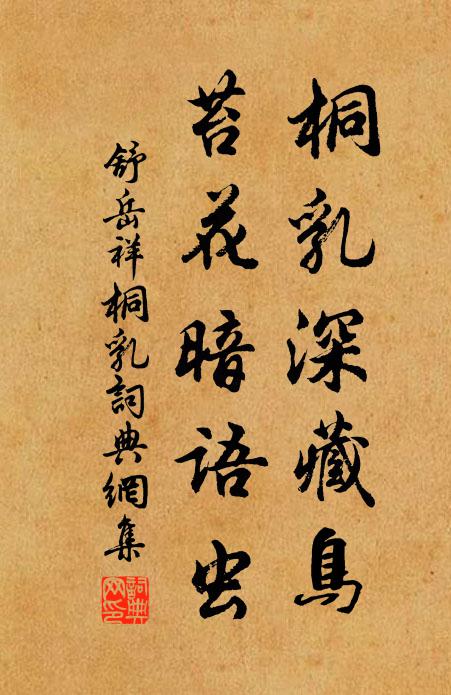 桐乳深藏鳥
苔花暗语虫
舒岳祥桐乳詞典網集
詞典網印